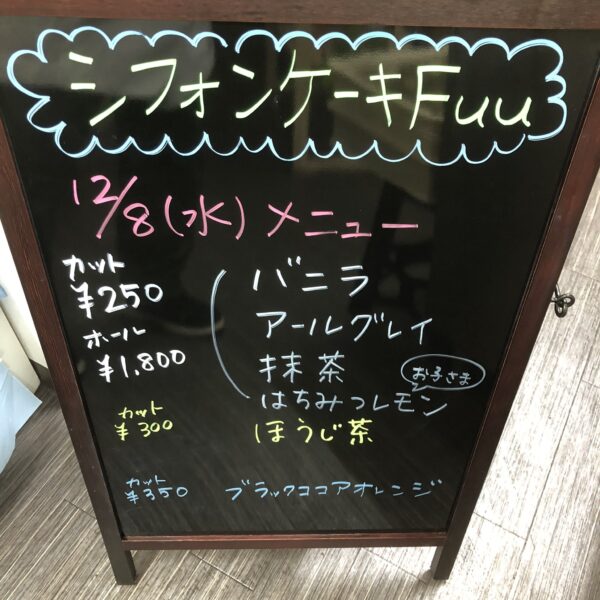 シフォンケーキFuu
12/8(水)メニュー
カット
¥250
ホール
¥1,800
バニラ
アールグレイ
抹茶
お子さま
はちみつレモン
カット
¥300
ほうじ茶
カット
¥350
ブラックココアオレンジ